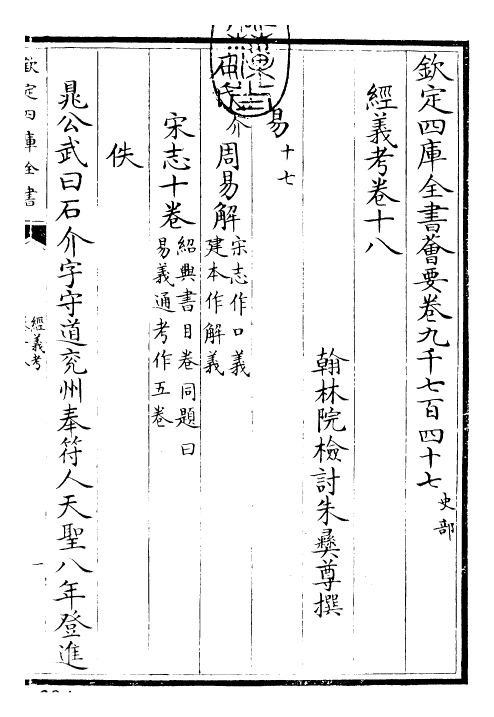 欽定四庫全書薈要卷九千七百四十七 史部
經義考卷十八
翰林院檢討朱彝尊撰
易十七
石氏介周易解 宋志作口義
建本作解義
宋志十卷 紹興書目卷同題曰
易義通考作五卷
佚
晁公武曰石介字守道兖州奉符人天聖八年登進
欽定四庫全書
經義考
一